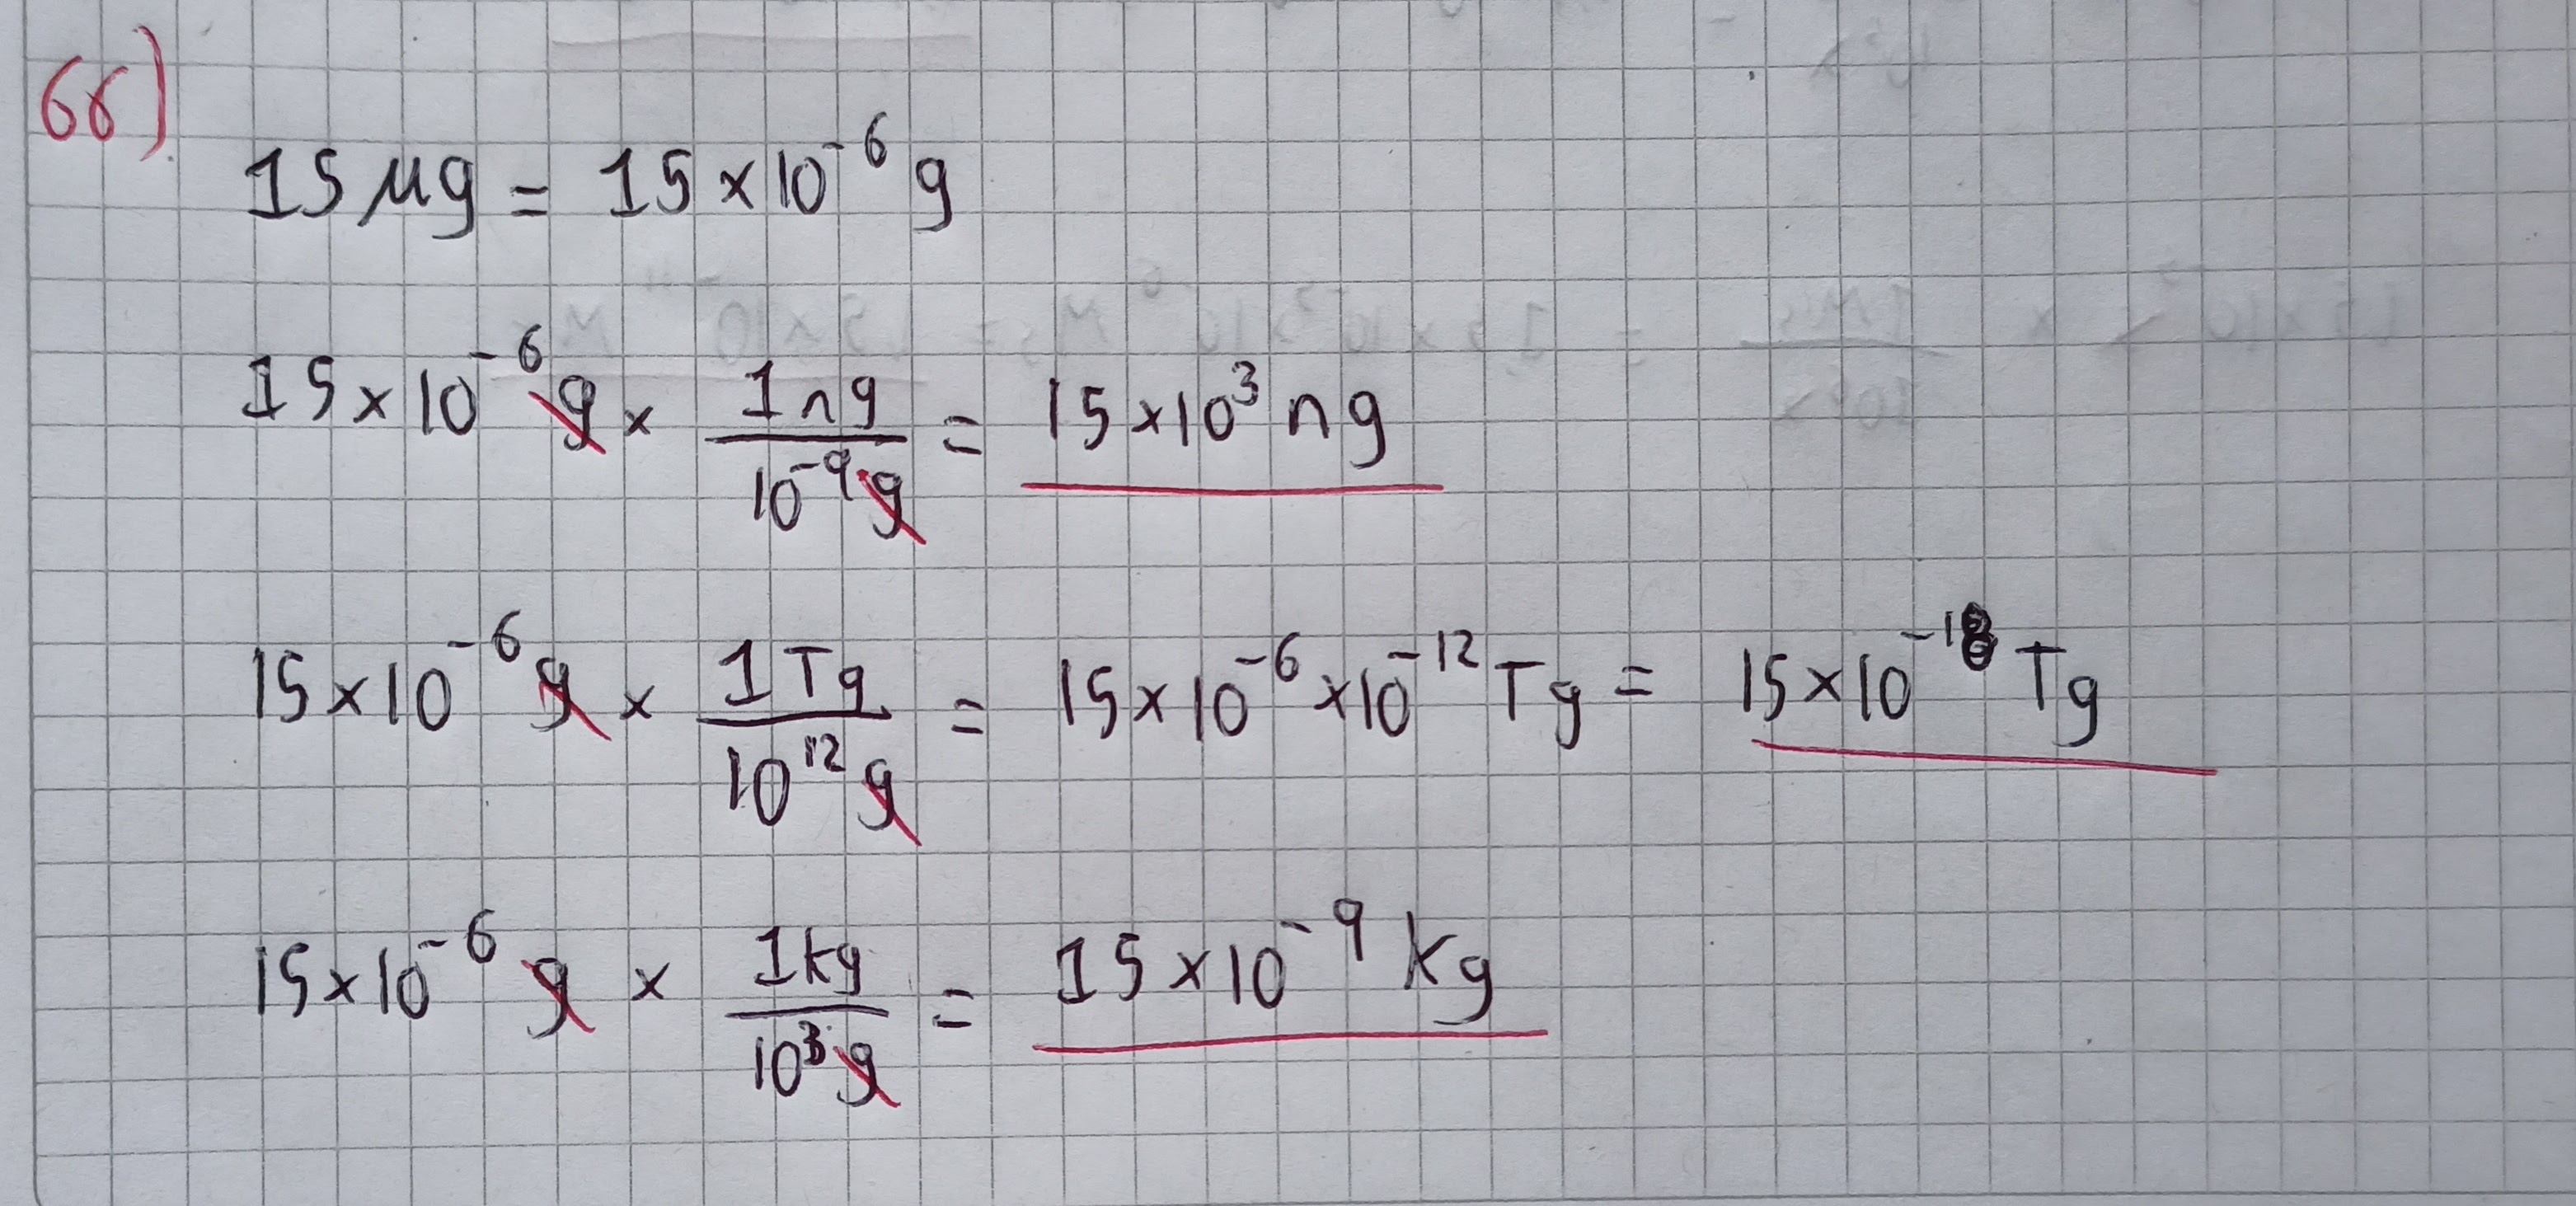 66)
15 μg = 15 × 10⁻⁶ g
15 × 10⁻⁶ g × 1 ng / 10⁻⁹ g = 15 × 10³ ng
15 × 10⁻⁶ g × 1 Tg / 10¹² g = 15 × 10⁻⁶ × 10⁻¹² Tg = 15 × 10⁻¹⁸ Tg
15 × 10⁻⁶ g × 1 kg / 10³ g = 15 × 10⁻⁹ kg